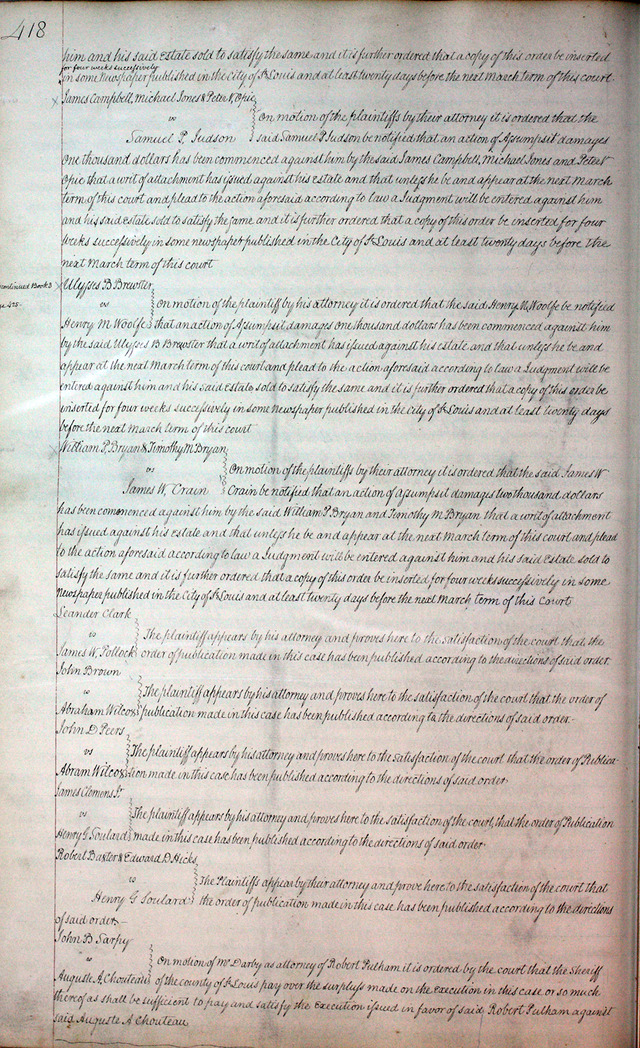 418
him and his said Estate sold to satisfy the same and it is further ordered that a copy of this order be inserted
for four weeks successively
in some Newspaper published in the City of St Louis and at least twenty days before the next March term of this court
James Campbell, Michael Jones & Peter V Opie
vs
On motion of the plaintiffs by their attorney it is ordered that the
Samuel P. Judson
said Samuel P. Judson be notified that an action of Assumpsit damages
One thousand dollars has been commenced against him by the said James Campbell, Michael Jones and Peter V
Opie that a writ of attachment has issued against his Estate and that unless he be and appear at the next March
term of this court and plead to the action aforesaid according to law a Judgment will be entered against him
and his said estate sold to satisfy the same and it is further ordered that a copy of this order be inserted for four
weeks successively in some newspaper published in the City of St Louis and at least twenty days before the
next March term of this court
continued Book 3
ge 425.
Ulysses B Brewster
vs
On motion of the plaintiff by his attorney it is ordered that the said Henry M, Woolfe be notified
Henry M Woolfe
that an action of Assumpsit damages one thousand dollars has been commenced against him
by the said Ulysses B Brewster that a writ of attachment has issued against his estate and that unless he be and
appear at the next March term of this court and plead to the action aforesaid according to law a Judgment will be
entered against him and his said Estate sold to satisfy the same and it is further ordered that a copy of this order be
inserted for four weeks successively in some Newspaper published in the City of St Louis and at least twenty days
before the next March term of this court
William P. Bryan & Timothy M Bryan
vs
On motion of the plaintiffs by their attorney it is ordered that the said James W
James W, Crain
Crain be notified that an action of Assumpsit damages two thousand dollars
has been commenced against him by the said William P. Bryan and Timothy M. Bryan that a writ of attachment
has issued against his estate and that unless he be and appear at the next March term of this court and plead
to the action aforesaid according to law a Judgment will be entered against him and his said Estate sold to
satisfy the same and it is further ordered that a copy of this order be inserted for four weeks successively in some
Newspaper published in the City of St Louis and at least twenty days before the next March term of this Court
Leander Clark
vs
The plaintiff appears by his attorney and proves here to the satisfaction of the court that the
James W. Pollock
order of publication made in this case has been published according to the directions of said order.
John Brown
vs
The plaintiff appears by his attorney and proves here to the satisfaction of the court that the order of
Abraham Wilcox
publication made in this case has been published according to the directions of said order.-
John D. Peers
vs
The plaintiff appears by his attorney and proves here to the satisfaction of the court that the order of Publica-
Abram Wilcox
tion made in this case has been published according to the directions of said order.
James Clemens Jr
vs
The plaintiff appears by his attorney and proves here to the satisfaction of the court, that the order of Publication
Henry G. Soulard
made in this case has been published according to the directions of said order.
Robert Baxter & Edward D. Hicks,
vs
The Plaintiffs appear by their attorney and prove here to the satisfaction of the court that
Henry G Soulard
the order of publication made in this case has been published according to the directions
of said order.-
John B Sarpy
vs
On motion of Mr Darby as attorney of Robert Pulham it is ordered by the court that the Sheriff
Auguste A Chouteau
of the county of St Louis pay over the surplus made on the execution in this case or so much
thereof as shall be sufficient to pay and satisfy the Execution issued in favor of said Robert Pulham against
said Auguste A Chouteau